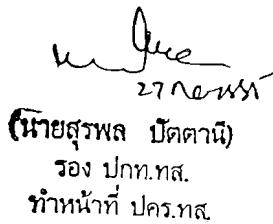 27
(นายสุรพล ปัตตานี)
รอง ปกท.ทส.
ทำหน้าที่ ปคร.ทส.